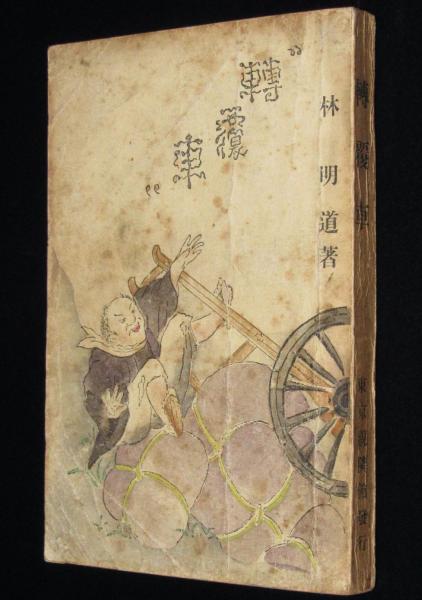 轉覆車
林明道著
轉覆車
發行